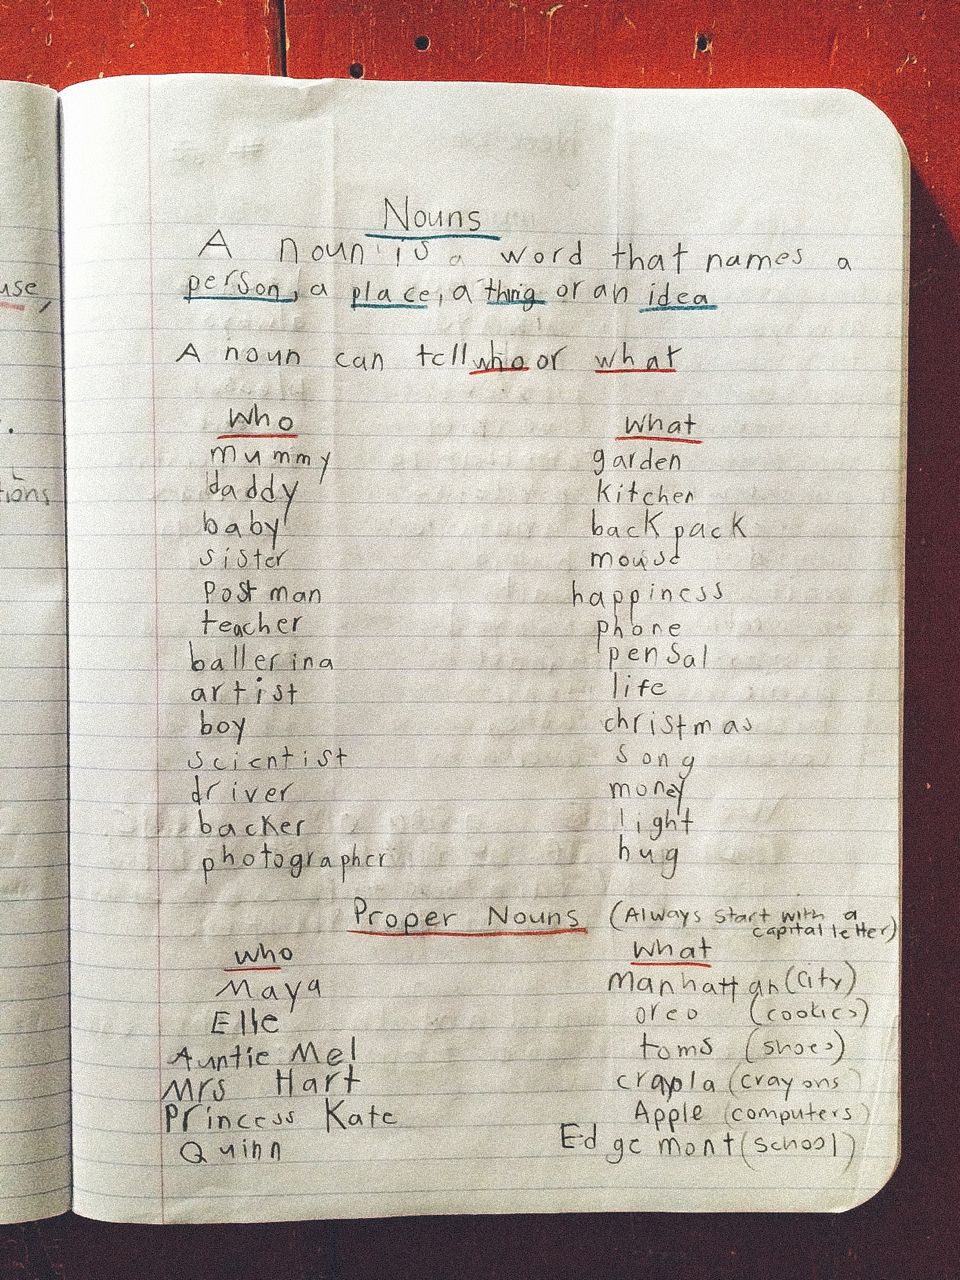 Nouns
A noun is a word that names a
person, a place, a thing or an idea
A noun can tell who or what
who
mummy
daddy
baby
sister
Postman
teacher
ballerina
artist
boy
scientist
driver
backer
photographer
what
garden
kitchen
back pack
mouse
happiness
phone
pensal
life
christmas
song
money
light
hug
Proper Nouns (Always start with a
capital letter)
who
Maya
Elle
Auntie Mel
Mrs Hart
Princess Kate
Quinn
what
Manhattan (city)
oreo (cookies)
toms (shoes)
crayola (crayons)
Apple (computers)
Edgemont (school)